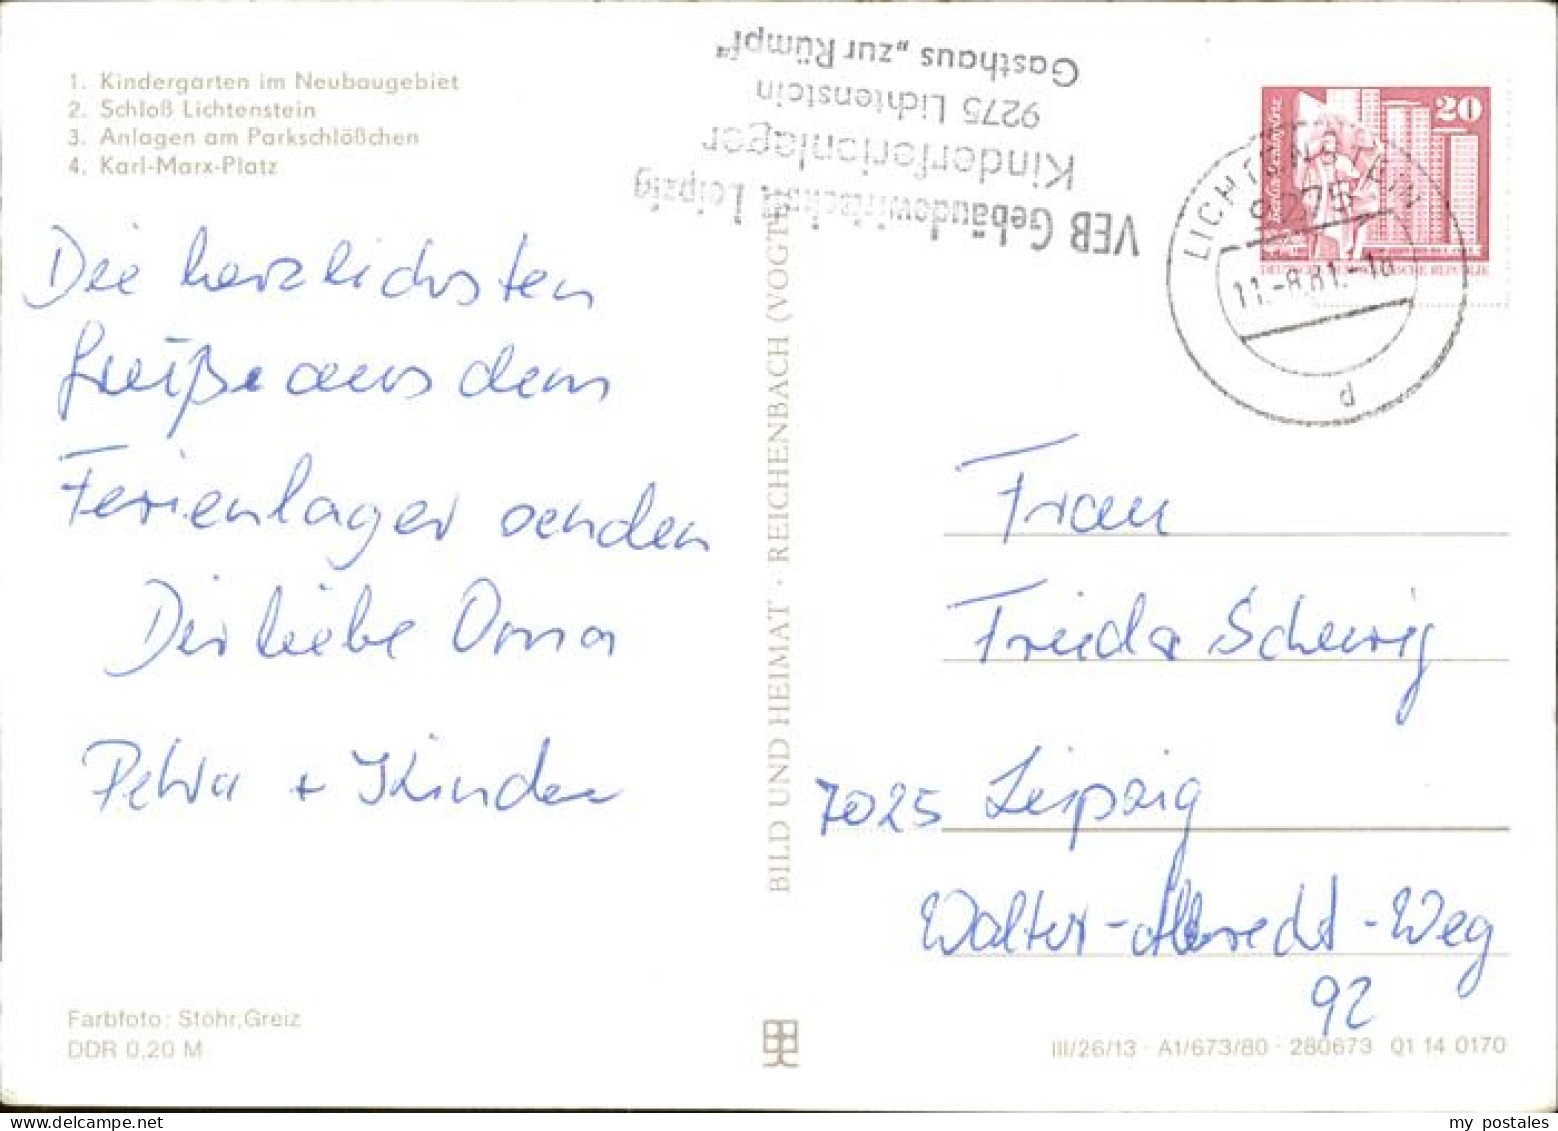 1. Kindergarten im Neubaugebiet
2. Schloß Lichtenstein
3. Anlagen am Parkschlößchen
4. Karl-Marx-Platz
VEB Gebäudewirtschaft Leipzig
Kinderferienlager
9275 Lichtenstein
Gasthaus „zur Rümpf“
20
DEUTSCHE DEMOKRATISCHE REPUBLIK
LICHTENSTEIN
9275
11.-8.81.-18
d
Die herzlichsten
Grüße aus dem
Ferienlager senden
Dir liebe Oma
Petra + Kinder
BILD UND HEIMAT · REICHENBACH (VOGTL
Frau
Frieda Scherrig
7025 Leipzig
Walter-Albrecht-Weg
92
Farbfoto: Stöhr, Greiz
DDR 0,20 M
III/26/13 · A1/673/80 · 280673 01 14 0170
my postales